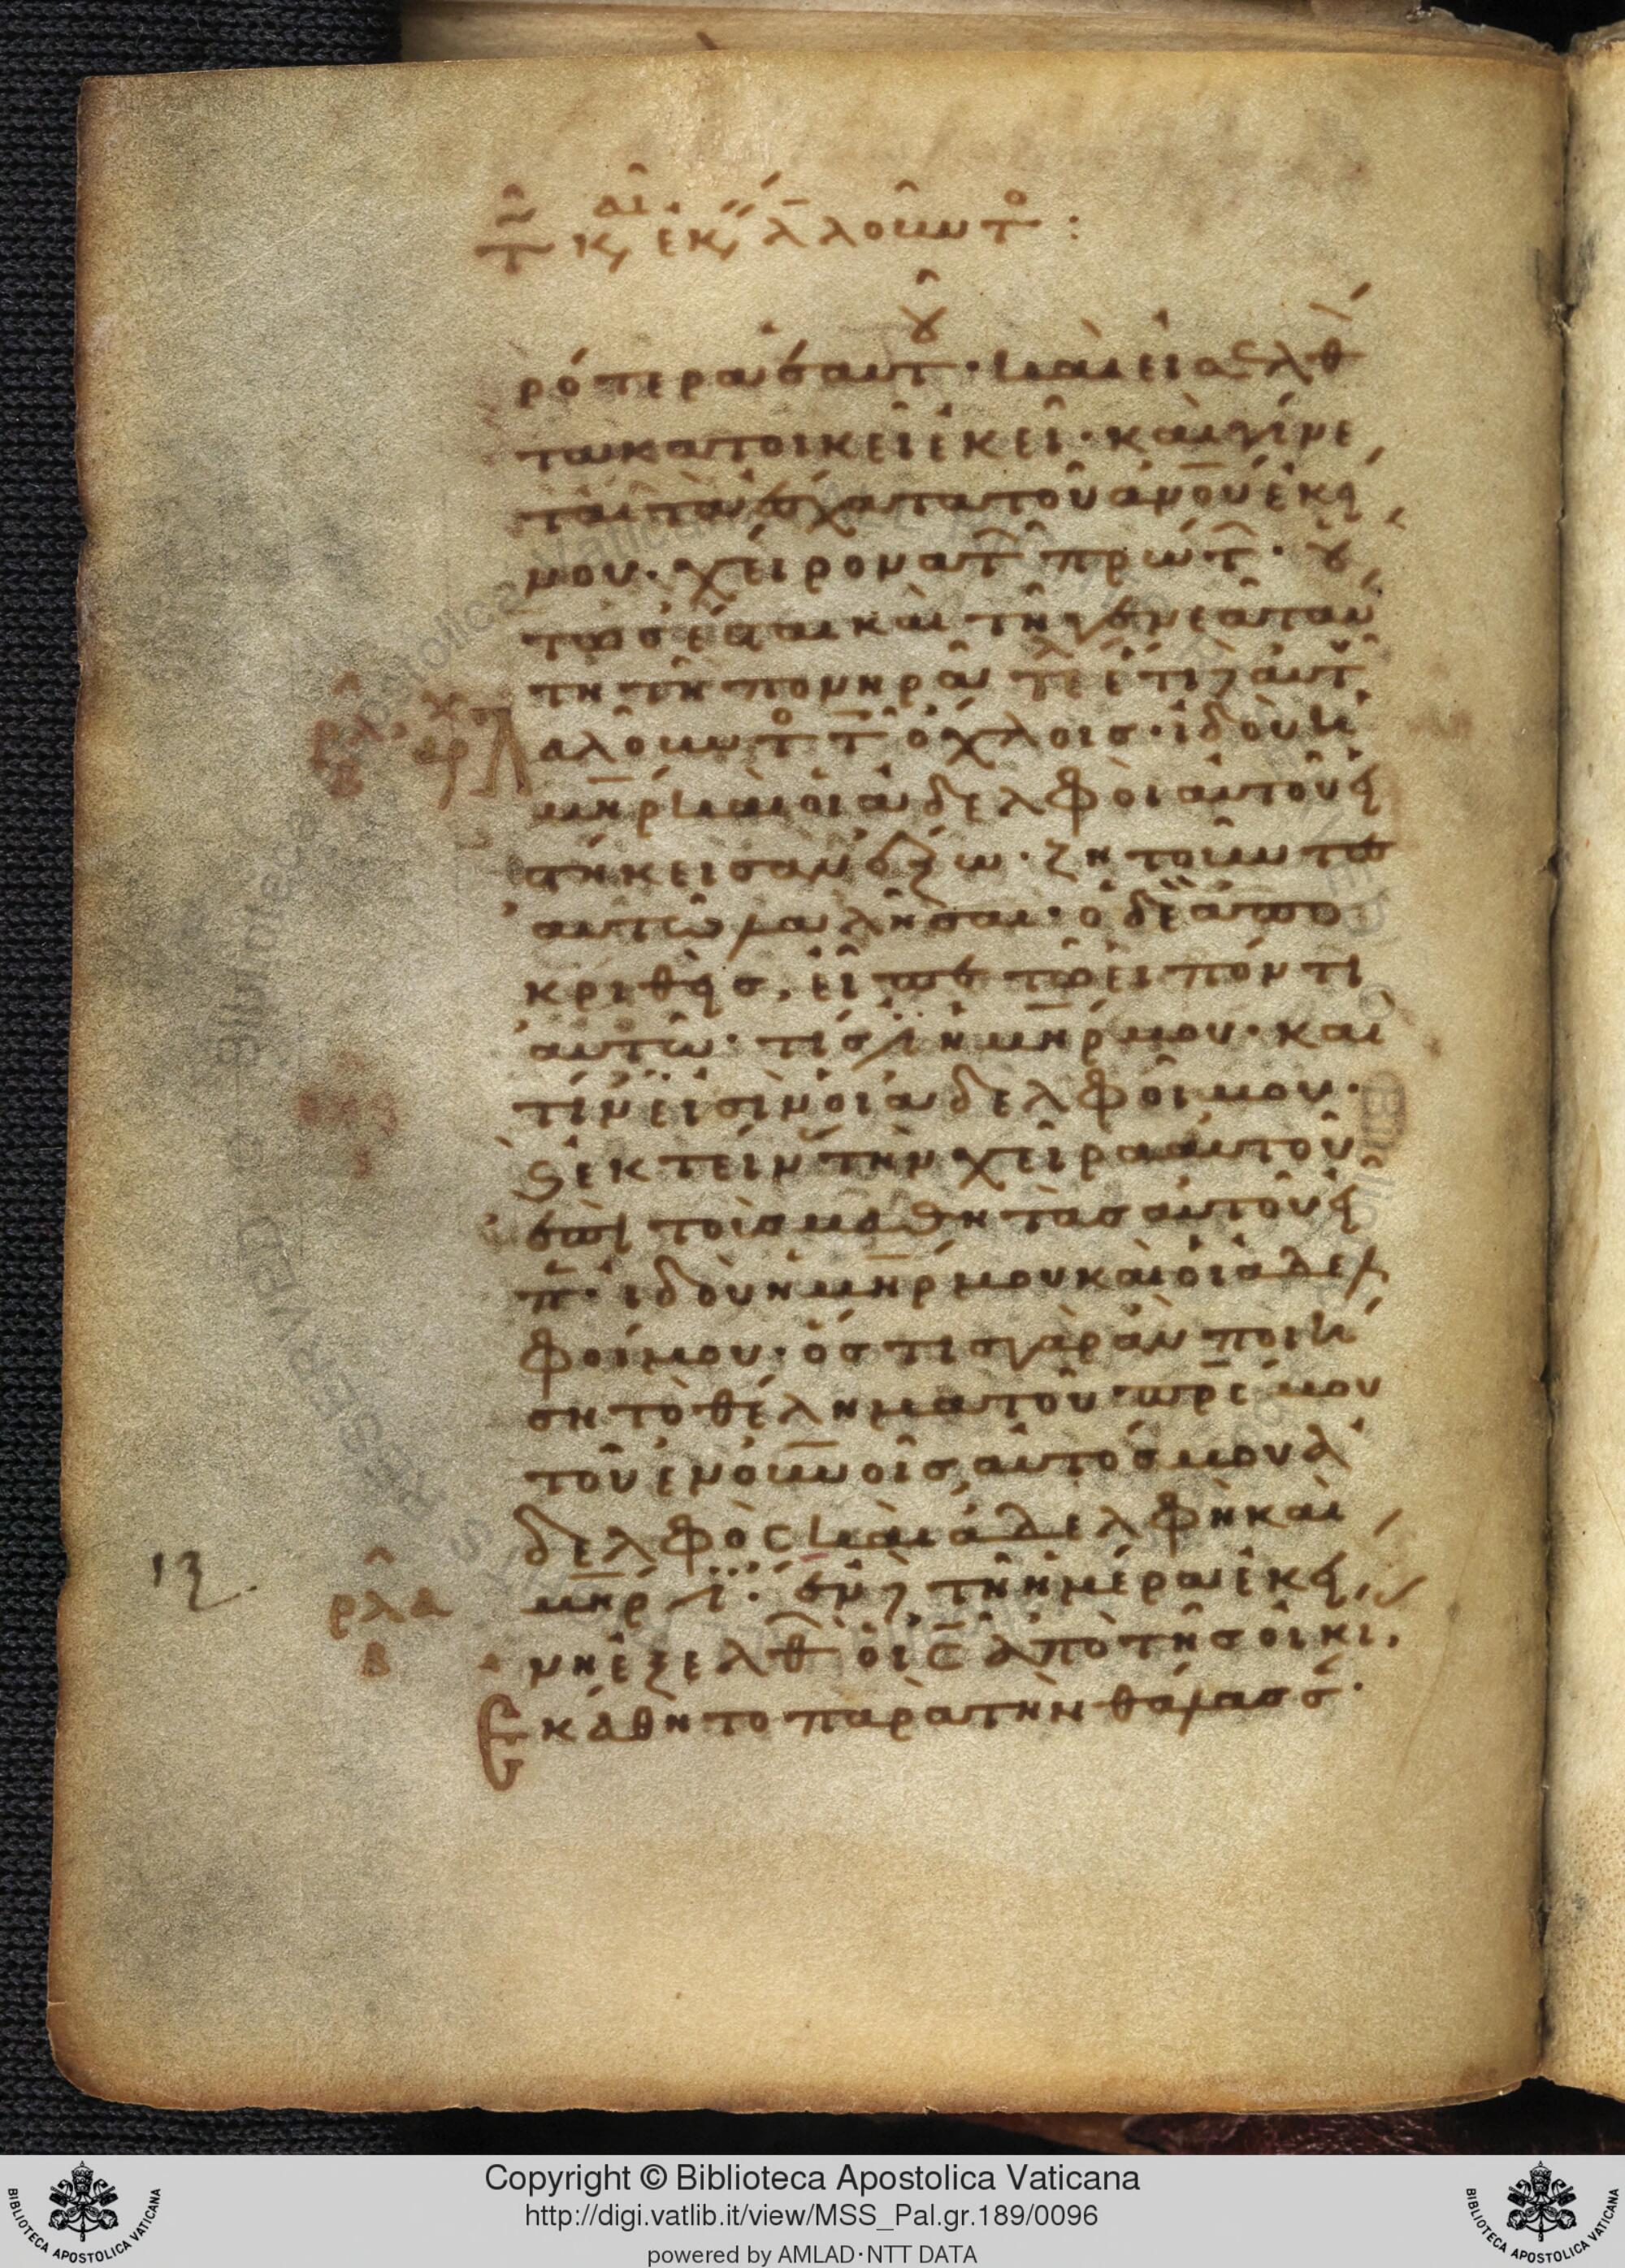 ρότερα ἑαυτοῦ· καὶ εἰσελθ
τα κατοικεῖ ἐκεῖ· καὶ γίνε
ται τὰ ἔσχατα τοῦ ἀνου ἐκεί
νου· χείρονα τ πρώτ· οὕ
τως ἔσται καὶ τῆ γενεᾶ ταύ
τη τῆ πονηρᾶ
αλοῦντ τ ὄχλοις· ἰδοὺ ἡ
μηρ καὶ οἱ ἀδελφοὶ αὐτοῦ εἱ
στήκεισαν ἔξω· ζητοῦντες
αὐτῶ λαλῆσαι· ὁ δὲ ἀπο
κριθεὶς, εἶπε τῶ εἰπόντι
αὐτῶ· τίς ἡ μηρ μου· καὶ
τίνες εἰσὶν οἱ ἀδελφοί μου·
ϛ ἐκτείν τὴν χεῖρα αὐτοῦ
ἐπὶ τοὺς μαθητὰς αὐτοῦ εἶ
π· ἰδοὺ ἡ μηρ μου καὶ οἱ ἀδελ
φοί μου· ὅστις γὰρ ἂν ποιή
ση τὸ θέλημα τοῦ πρς μου
τοῦ ἐν οὐνοις, αὐτός μου ἀ
δελφὸς καὶ ἀδελφὴ καὶ
ιζ
ρλα
β
μηρ ἐν τῆ ἡμέρα ἐκεί
νη ἐξελθ ὁ ις ἀπὸ τῆς οἰκι,
Εκάθητο παρὰ τὴν θάλασσ·
Copyright © Biblioteca Apostolica Vaticana
http://digi.vatlib.it/view/MSS_Pal.gr.189/0096
powered by AMLAD·NTT DATA
BIBLIOTECA APOSTOLICA VATICANA
BIBLIOTECA APOSTOLICA VATICANA